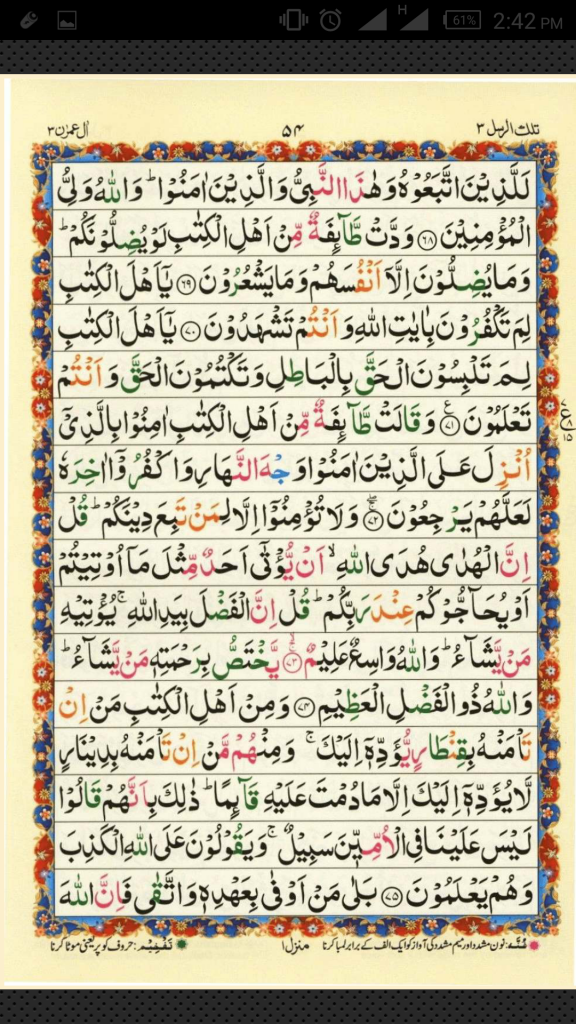 61% 2:42 PM
H
تلك الرسل ٣ ۵۴ اٰل عمرٰن ٣
لَلَّذِيْنَ اتَّبَعُوْهُ وَهٰذَا النَّبِىُّ وَالَّذِيْنَ اٰمَنُوْا ؕ وَاللّٰهُ وَلِىُّ
الْمُؤْمِنِيْنَ ﴿۶۸﴾ وَدَّتْ طَّآئِفَةٌ مِّنْ اَهْلِ الْكِتٰبِ لَوْ يُضِلُّوْنَكُمْ ؕ
وَمَا يُضِلُّوْنَ اِلَّاۤ اَنْفُسَهُمْ وَمَا يَشْعُرُوْنَ ﴿۶۹﴾ يٰۤاَهْلَ الْكِتٰبِ
لِمَ تَكْفُرُوْنَ بِاٰيٰتِ اللّٰهِ وَاَنْتُمْ تَشْهَدُوْنَ ﴿۷۰﴾ يٰۤاَهْلَ الْكِتٰبِ
لِمَ تَلْبِسُوْنَ الْحَقَّ بِالْبَاطِلِ وَتَكْتُمُوْنَ الْحَقَّ وَاَنْتُمْ
تَعْلَمُوْنَ ﴿۷۱﴾ ع وَقَالَتْ طَّآئِفَةٌ مِّنْ اَهْلِ الْكِتٰبِ اٰمِنُوْا بِالَّذِىْۤ
اُنْزِلَ عَلَى الَّذِيْنَ اٰمَنُوْا وَجْهَ النَّهَارِ وَاكْفُرُوْۤا اٰخِرَهٗ
لَعَلَّهُمْ يَرْجِعُوْنَ ﴿۷۲﴾ وَلَا تُؤْمِنُوْۤا اِلَّا لِمَنْ تَبِعَ دِيْنَكُمْ ؕ قُلْ
اِنَّ الْهُدٰى هُدَى اللّٰهِ ۙ اَنْ يُّؤْتٰٓى اَحَدٌ مِّثْلَ مَاۤ اُوْتِيْتُمْ
اَوْ يُحَآجُّوْكُمْ عِنْدَ رَبِّكُمْ ؕ قُلْ اِنَّ الْفَضْلَ بِيَدِ اللّٰهِ ۚ يُؤْتِيْهِ
مَنْ يَّشَآءُ ؕ وَاللّٰهُ وَاسِعٌ عَلِيْمٌ ﴿۷۳﴾ يَّخْتَصُّ بِرَحْمَتِهٖ مَنْ يَّشَآءُ ؕ
وَاللّٰهُ ذُو الْفَضْلِ الْعَظِيْمِ ﴿۷۴﴾ وَمِنْ اَهْلِ الْكِتٰبِ مَنْ اِنْ
تَاْمَنْهُ بِقِنْطَارٍ يُّؤَدِّهٖۤ اِلَيْكَ ۚ وَمِنْهُمْ مَّنْ اِنْ تَاْمَنْهُ بِدِيْنَارٍ
لَّا يُؤَدِّهٖۤ اِلَيْكَ اِلَّا مَا دُمْتَ عَلَيْهِ قَآئِمًا ؕ ذٰلِكَ بِاَنَّهُمْ قَالُوْا
لَيْسَ عَلَيْنَا فِى الْاُمِّيّٖنَ سَبِيْلٌ ۚ وَيَقُوْلُوْنَ عَلَى اللّٰهِ الْكَذِبَ
وَهُمْ يَعْلَمُوْنَ ﴿۷۵﴾ بَلٰى مَنْ اَوْفٰى بِعَهْدِهٖ وَاتَّقٰى فَاِنَّ اللّٰهَ
غُنَّہ: نون مشدد اور میم مشدد کی آواز کو ایک الف کے برابر لمبا کرنا منزل ۱ تَفْخِيْم: حروف کو پر یعنی موٹا کرنا